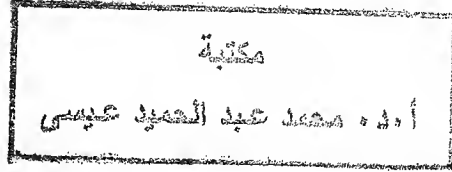 مكتبة
أ.د. محمد عبد الحميد عيسى